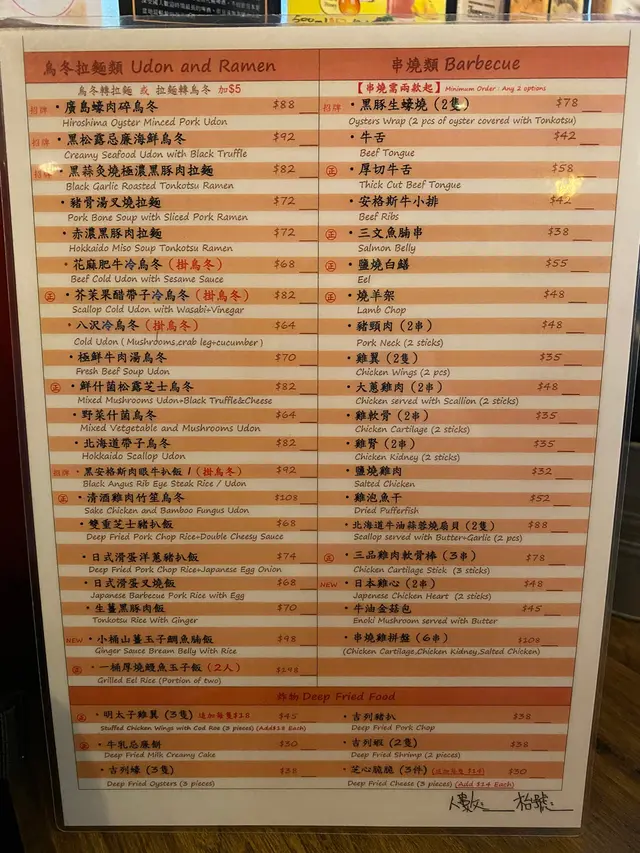 烏冬拉麵類 Udon and Ramen
烏冬轉拉麵 或 拉麵轉烏冬 加$5
招牌 ・廣島蠔肉碎烏冬 $88
Hiroshima Oyster Minced Pork Udon
招牌 ・黑松露忌廉海鮮烏冬 $92
Creamy Seafood Udon with Black Truffle
招牌 ・黑蒜灸燒極濃黑豚肉拉麵 $82
Black Garlic Roasted Tonkotsu Ramen
・豬骨湯叉燒拉麵 $72
Pork Bone Soup with Sliced Pork Ramen
・赤濃黑豚肉拉麵 $72
Hokkaido Miso Soup Tonkotsu Ramen
・花麻肥牛冷烏冬（掛烏冬） $68
Beef Cold Udon with Sesame Sauce
正 ・芥茉果醋帶子冷烏冬（掛烏冬） $82
Scallop Cold Udon with Wasabi+Vinegar
・八沢冷烏冬（掛烏冬） $64
Cold Udon ( Mushrooms,crab leg+cucumber )
・極鮮牛肉湯烏冬 $70
Fresh Beef Soup Udon
正 ・鮮什菌松露芝士烏冬 $82
Mixed Mushrooms Udon+Black Truffle&Cheese
・野菜什菌烏冬 $64
Mixed Vetgetable and Mushrooms Udon
・北海道帶子烏冬 $82
Hokkaido Scallop Udon
招牌 ・黑安格斯肉眼牛扒飯 /（掛烏冬） $92
Black Angus Rib Eye Steak Rice / Udon
正 ・清酒雞肉竹笙烏冬 $108
Sake Chicken and Bamboo Fungus Udon
・雙重芝士豬扒飯 $68
Deep Fried Pork Chop Rice+Double Cheesy Sauce
・日式滑蛋洋蔥豬扒飯 $74
Deep Fried Pork Chop Rice+Japanese Egg Onion
・日式滑蛋叉燒飯 $68
Japanese Barbecue Pork Rice with Egg
・生薑黑豚肉飯 $70
Tonkotsu Rice with Ginger
NEW ・小桶山薑玉子鯛魚腩飯 $98
Ginger Sauce Bream Belly With Rice
正 ・一桶厚燒鰻魚玉子飯（2人） $198
Grilled Eel Rice (Portion of two)
串燒類 Barbecue
【串燒需兩款起】 Minimum Order : Any 2 options
招牌 ・黑豚生蠔燒（2隻） $78
Oysters Wrap (2 pcs of oyster covered with Tonkotsu)
・牛舌 $42
Beef Tongue
正 ・厚切牛舌 $58
Thick Cut Beef Tongue
・安格斯牛小排 $42
Beef Ribs
正 ・三文魚腩串 $38
Salmon Belly
正 ・鹽燒白鱔 $55
Eel
正 ・燒羊架 $48
Lamb Chop
・豬頸肉（2串） $48
Pork Neck (2 sticks)
・雞翼（2隻） $35
Chicken Wings (2 pcs)
・大蔥雞肉（2串） $48
Chicken served with Scallion (2 sticks)
・雞軟骨（2串） $35
Chicken Cartilage (2 sticks)
・雞腎（2串） $35
Chicken Kidney (2 sticks)
・鹽燒雞肉 $32
Salted Chicken
・雞泡魚干 $52
Dried Pufferfish
・北海道牛油蒜蓉燒扇貝（2隻） $88
Scallop served with Butter+Garlic (2 pcs)
正 ・三品雞肉軟骨棒（3串） $78
Chicken Cartilage Stick (3 sticks)
NEW ・日本雞心（2串） $48
Japanese Chicken Heart (2 sticks)
・牛油金菇包 $45
Enoki Mushroom served with Butter
・串燒雞拼盤（6串） $108
(Chicken Cartilage,Chicken Kidney,Salted Chicken)
炸物 Deep Fried Food
正 ・明太子雞翼（3隻）追加每隻$18 $45
Stuffed Chicken Wings with Cod Roe (3 pieces) (Add$18 Each)
正 ・牛乳忌廉餅 $30
Deep Fried Milk Creamy Cake
・吉列蠔（3隻） $38
Deep Fried Oysters (3 pieces)
・吉列豬扒 $38
Deep Fried Pork Chop
・吉列蝦（2隻） $38
Deep Fried Shrimp (2 pieces)
・芝心脆脆（3件）(追加每隻 $14) $30
Deep Fried Cheese (3 pieces) (Add $14 Each)
人數: 枱號: